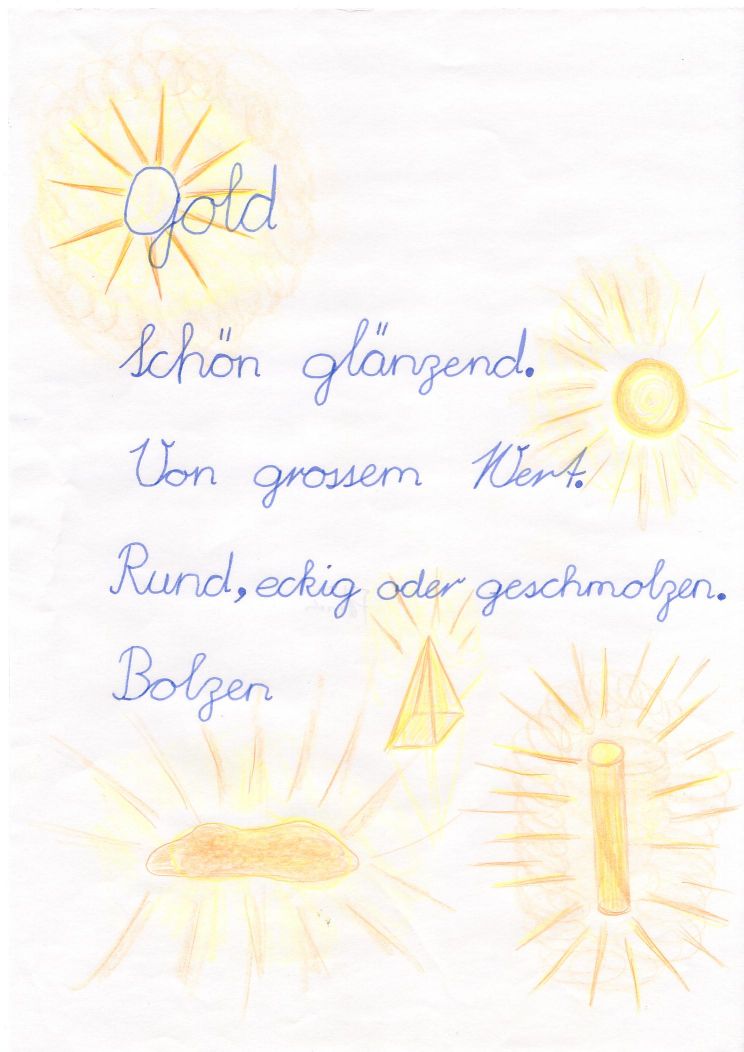 Gold
Schön glänzend.
Von grossem Wert.
Rund, eckig oder geschmolzen.
Bolzen